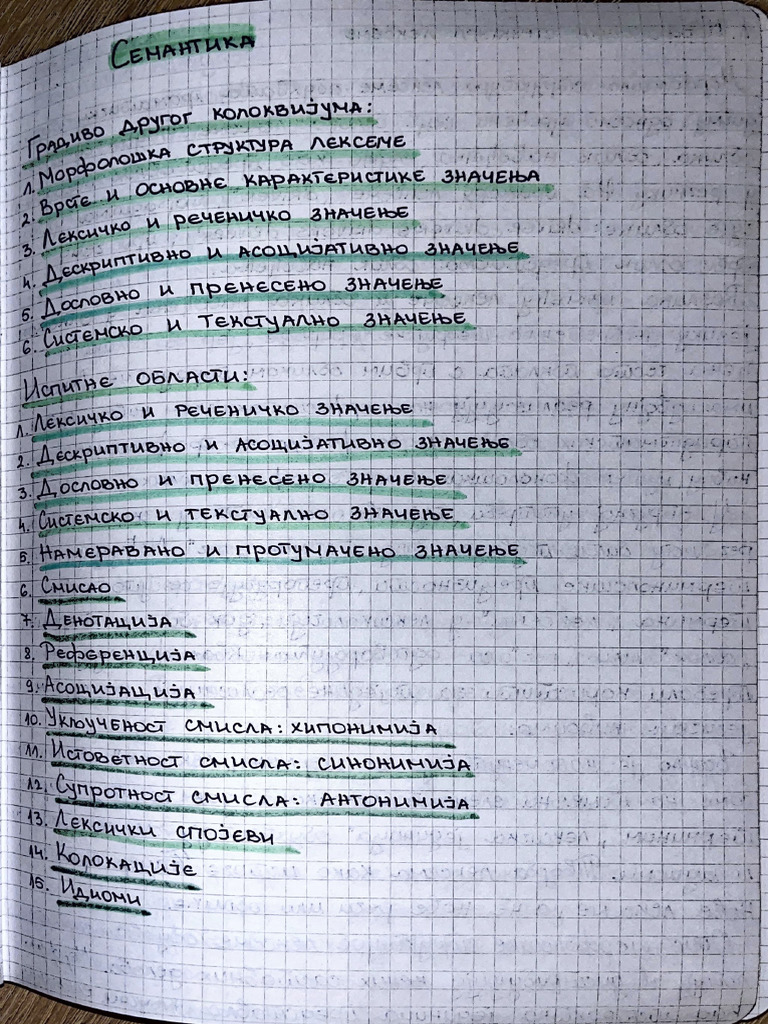 Семантика
Градиво другог колоквијума:
1. Морфолошка структура лексеме
2. Врсте и основне карактеристике значења
3. Лексичко и реченичко значење
4. Дескриптивно и асоцијативно значење
5. Дословно и пренесено значење
6. Системско и текстуално значење
Испитне области:
1. Лексичко и реченичко значење
2. Дескриптивно и асоцијативно значење
3. Дословно и пренесено значење
4. Системско и текстуално значење
5. Намеравано и протумачено значење
6. Смисао
7. Денотација
8. Референција
9. Асоцијација
10. Укљученост смисла: хипонимија
11. Истоветност смисла: синонимија
12. Супротност смисла: антонимија
13. Лексички спојеви
14. Колокације
15. Идиоми